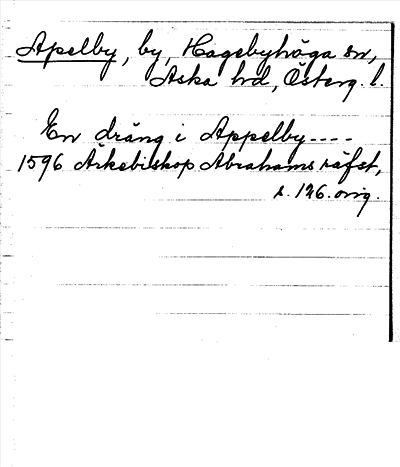 Apelby, by, Hagebyhöga sn,
Aska hd, Österg. l.
En dräng i Appelby----
1596 Ärkebiskop Abrahams räfst,
s. 176. orig.